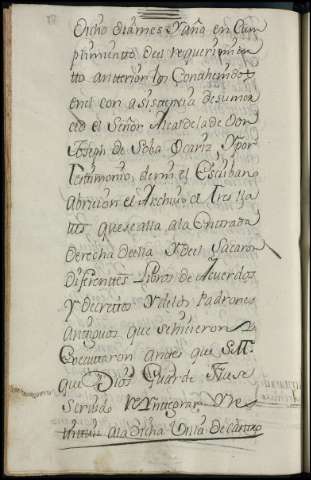 Dicho dia mes y año en Cum
plimiento del requerimien
tto antterior los Conthenidos
en el con asistenzia de su mer
ced el Señor Alcalde la de Don
Joseph de Soba Ocariz y por
testimonio de mi el Escribano
abrieron el Archivo de tres lla
ves que se alla a la enttrada
derecha de ella y de el sacaron
diferenttes Libros de Acuerdos
y decrettos y de los Padrones
antiguos que se hicieron y
executtaron antes que S.M.
que Dios Guarde fuese
servido reintegrar y re
unir a la dicha Villa de